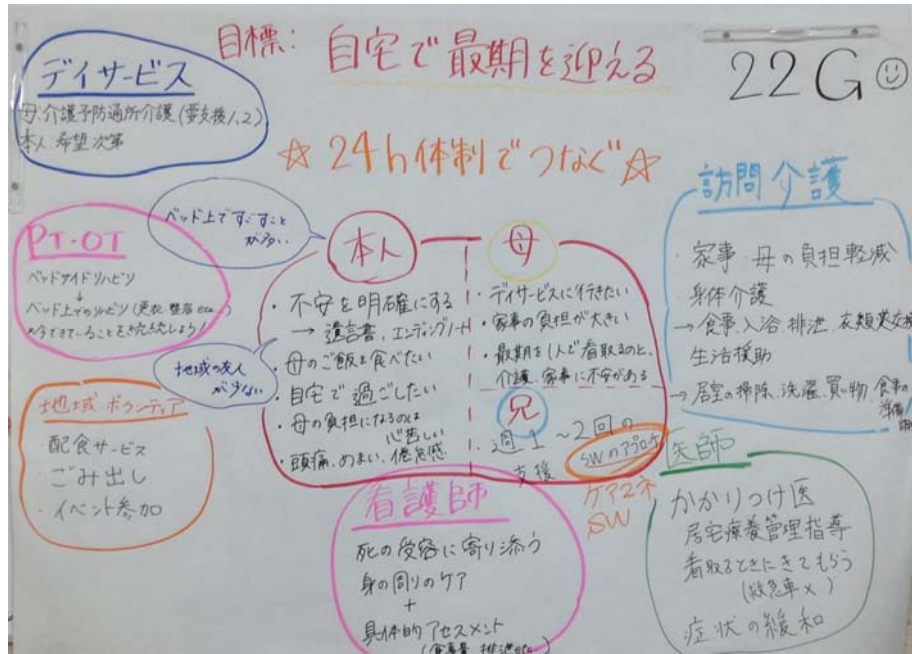 目標: 自宅で最期を迎える
22G
☆24h体制でつなぐ☆
デイサービス
母:介護予防通所介護(要支援1、2)
本人:希望次第
PT・OT
ベッドサイドリハビリ
↓
ベッド上でのリハビリ(更衣、整容etc...)
今できていることを続けよう!
ベッド上ですごすこと
が多い
地域の友人
が少ない
地域・ボランティア
・配食サービス
・ごみ出し
・イベント参加
本人
・不安を明確にする
→遺言書、エンディングノート
・母のご飯を食べたい
・自宅で過ごしたい
・母の負担になるのは
心苦しい
・頭痛、めまい、倦怠感
母
・デイサービスに行きたい
・家事の負担が大きい
・最期を1人で看取るのと、
介護、家事に不安がある
兄
週1~2回の
支援
SWのアプローチ
ケアマネ
SW
訪問介護
・家事・母の負担軽減
・身体介護
→食事、入浴、排泄、衣類
生活援助
→居室の掃除、洗濯、買い物、食事の
準備
看護師
死の受容に寄り添う
身の周りのケア
+
具体的アセスメント
(食事量、排泄etc
医師
かかりつけ医
居宅療養管理指導
看取るときにきてもらう
(救急車×)
症状の緩和